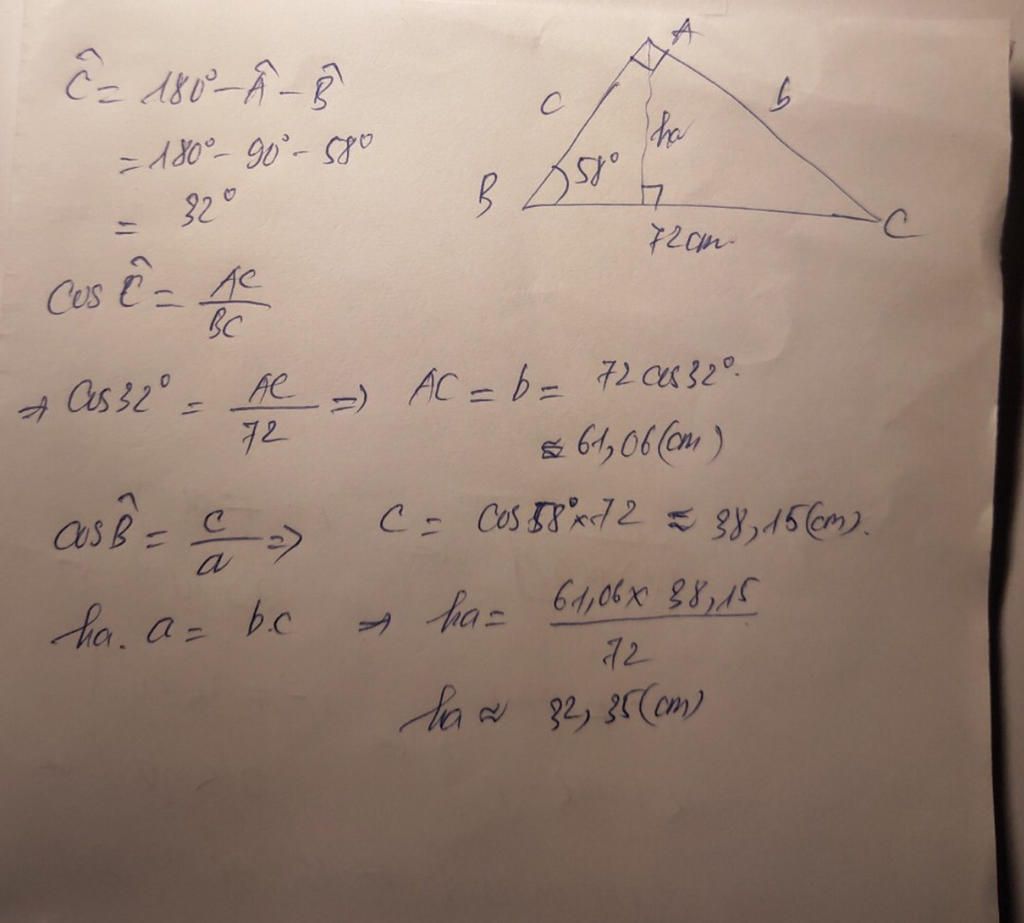 Ĉ = 180° - Â - B̂
= 180° - 90° - 58°
= 32°
A
C
b
ha
58°
B
72cm
C
Cos Ĉ = AC/BC
⇒ Cos32° = AC/72 ⇒ AC = b = 72 cos32°.
≈ 61,06(cm)
cosB̂ = c/a ⇒ C = Cos58° x 72 ≈ 38,15(cm).
ha. a = b.c ⇒ ha = 61,06 x 38,15/72
ha ≈ 32,35(cm)